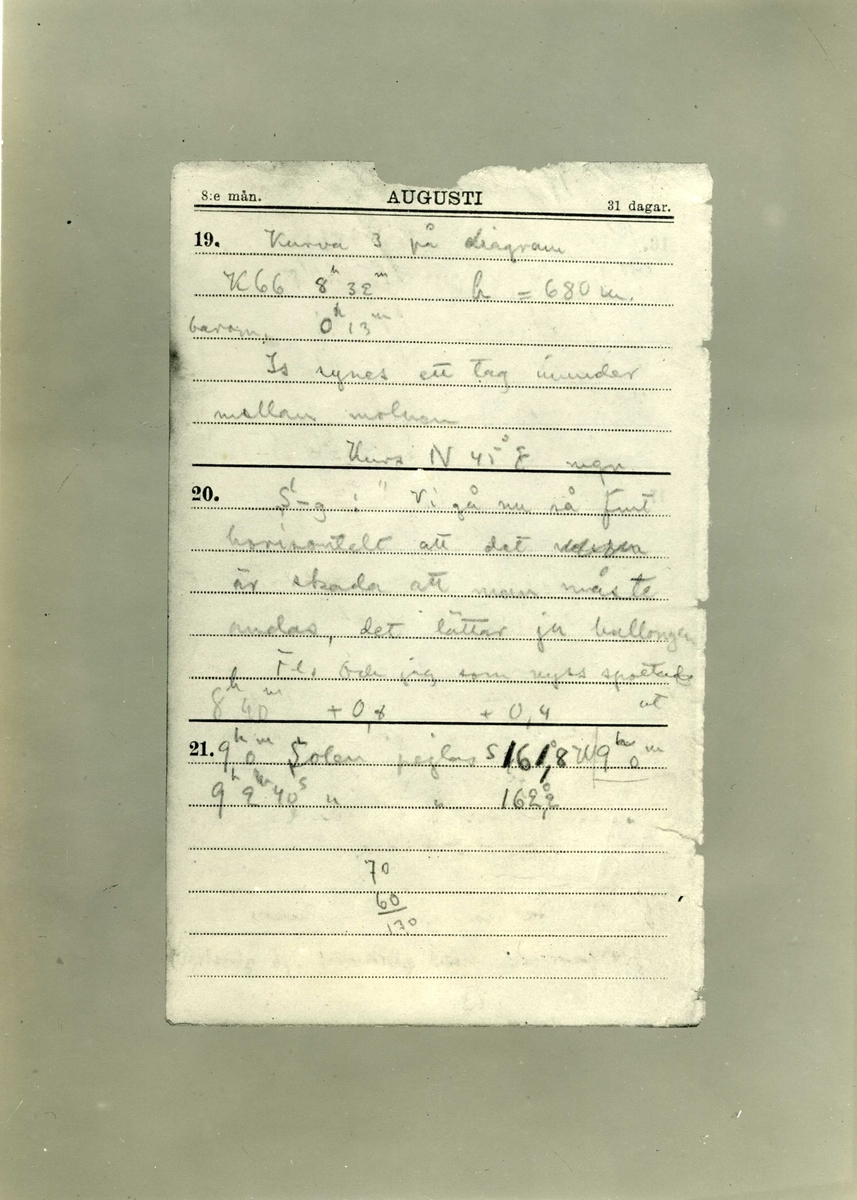 8:e mån. AUGUSTI 31 dagar.
19. Kurva 3 på diagram
K66 8h 32m h = 680 m.
barom. 0h 13m
Is synes ett tag inunder
mellan molnen
Kurs N 45° E
20. S-g: " Vi gå nu så fint
horisontelt att det
är skada att man måste
andas, det lättar ju ballongen
Fl. Och jag som nyss spottade
ut
8h 40m +0,8 +0,4
21. 9h 0m Solen pejlas S 161,8° W 9h 0m
9h 2m 40s " " 162,2°
70
60
130